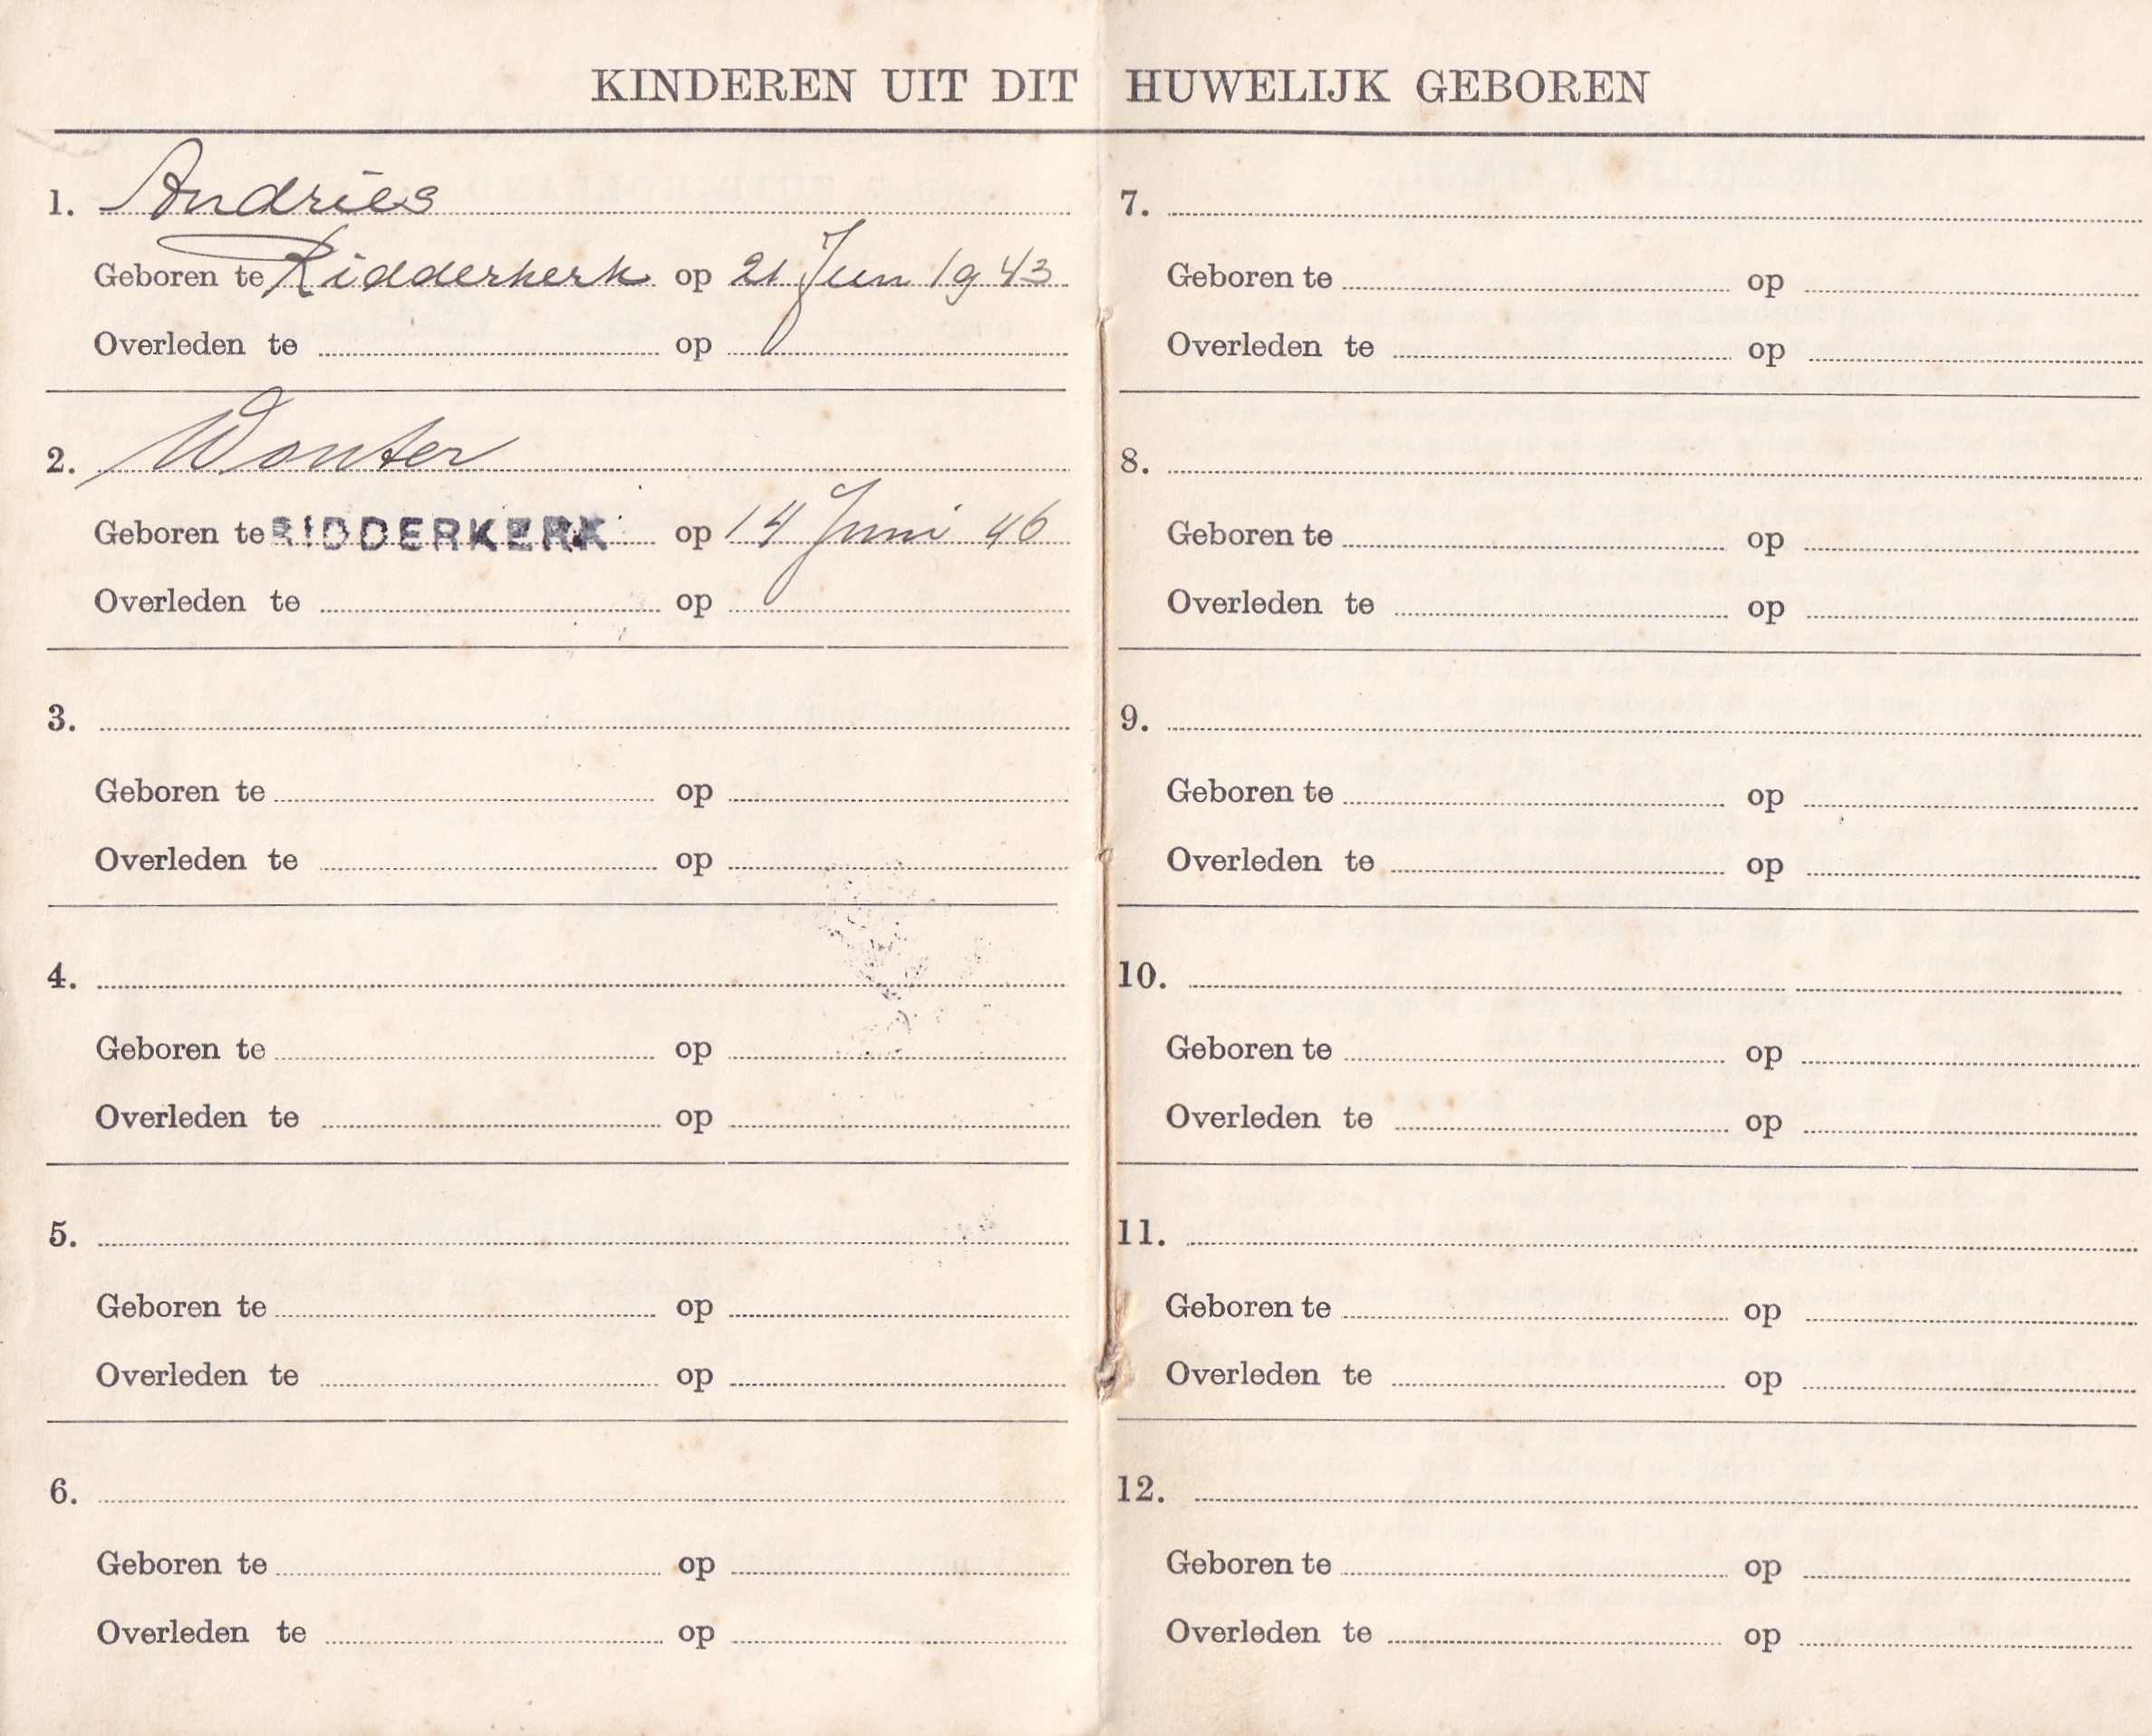 KINDEREN UIT DIT HUWELIJK GEBOREN
1. Andries
Geboren te Ridderkerk op 21 Jun 1943
Overleden te op
2. Wouter
Geboren te RIDDERKERK op 14 Juni 46
Overleden te op
3.
Geboren te op
Overleden te op
4.
Geboren te op
Overleden te op
5.
Geboren te op
Overleden te op
6.
Geboren te op
Overleden te op
7.
Geboren te op
Overleden te op
8.
Geboren te op
Overleden te op
9.
Geboren te op
Overleden te op
10.
Geboren te op
Overleden te op
11.
Geboren te op
Overleden te op
12.
Geboren te op
Overleden te op